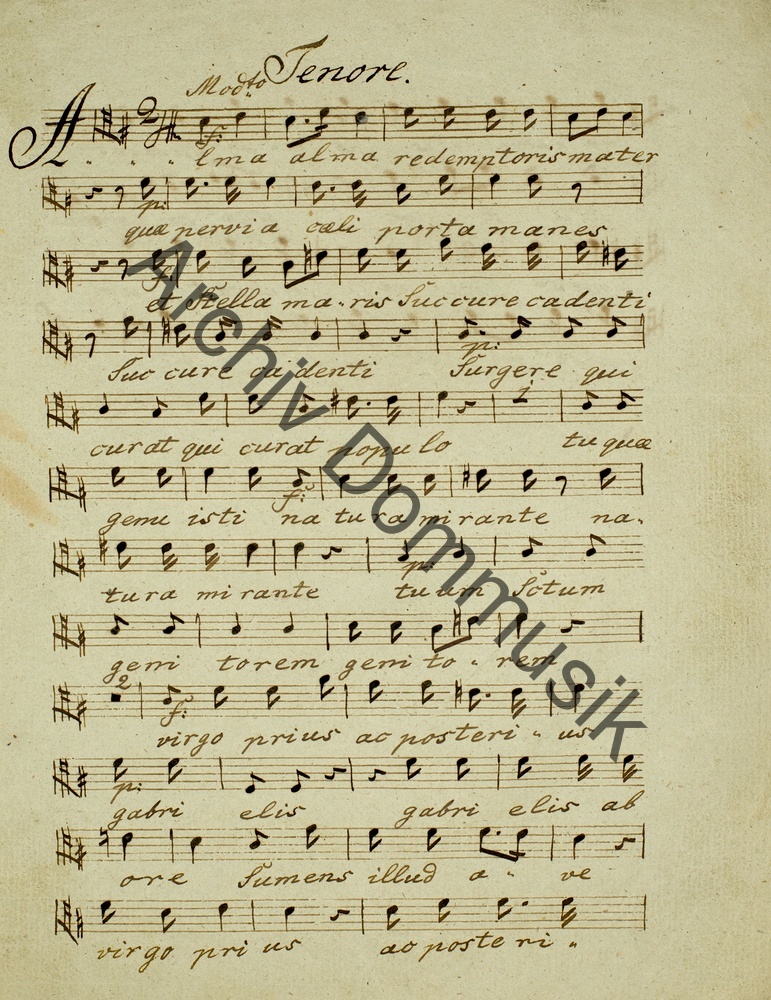 Tenore.
Mod:to
A lma alma redemptoris mater
f:
quæ pervia cœli porta manes
p:
et Stella ma - ris Succure cadenti
f:
Succure cadenti Surgere qui
p:
curat qui curat populo tu quæ
1
genu isti natura mirante na -
f:
tura mirante tuum Sctum
p:
geni torem geni to - rem
2
virgo prius ac posteri - us
f:
gabri elis gabri elis ab
p:
ore Sumens illud a - ve
virgo prius ac posteri -
Archiv Dommusik